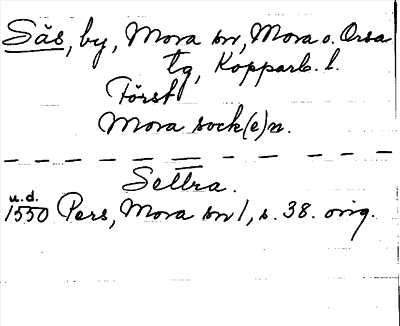 Säs, by, Mora sn, Mora o. Orsa
tg, Kopparb. l.
Först
Mora sock(e)n.
Settra.
u.d.
1550 Pers, Mora sn 1, s. 38. orig.